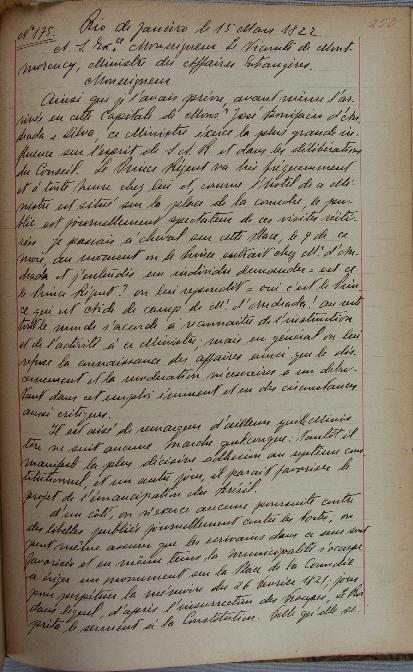 Nº 175.
Rio de Janeiro le 15 Mars 1822
250
A. S. Exce Monseigneur Le Vicomte de Mont-
morency, Ministre des Affaires Etrangères.
Monseigneur
Ainsi que je l'avais prévu, avant même l'ar-
rivée en cette Capitale de Monsr José Bonifacio d'An-
drada e Silva, ce Ministre exerce la plus grande in-
fluence sur l'esprit de S. A. R. et dans les délibérations
du Conseil. Le Prince Régent va très fréquemment
et à toute heure chez lui et, comme l'hôtel de ce Mi-
nistre est situé sur la place de la comédie, le pu-
blic est journellement spectateur de ces visites réité-
rées. Je passais à cheval sur cette Place, le 9 de ce
mois, au moment où le Prince entrait chez Mr. d'An-
drada et j'entendis un individu demander = est ce
le Prince Régent? on lui répondit = oui c'est le Prin-
ce qui est aide de camp de Mr. d'Andrada! au reste
tout le monde s'accorde à reconnaître de l'instruction
et de l'activité à ce Ministre; mais en général on lui
refuse la connaissance des affaires ainsi que le dis-
cernement et la modération nécessaires à un débu-
tant dans cet emploi éminent et en des circonstances
aussi critiques.
Il est aisé de remarquer d'ailleurs que le Minis-
tère ne suit aucune marche quelconque: tantôt il
manifeste la plus décisive adhésion au système cons-
titutionnel et un autre jour, il parait favoriser le
projet de l'émancipation du Brésil.
D'un côté, on n'exerce aucune poursuite contre
des libelles publiés journellement contre les Cortès, on
peut même assurer que les écrivains dans ce sens sont
favorisés et en même tems la municipalité s'occupe
à ériger un monument sur la Place de la Comédie
pour perpétuer la mémoire du 26 Février 1821, jour
dans lequel, d'après l'insurrection des troupes, le Roi
prêta le serment à la Constitution. Telle qu'elle se-